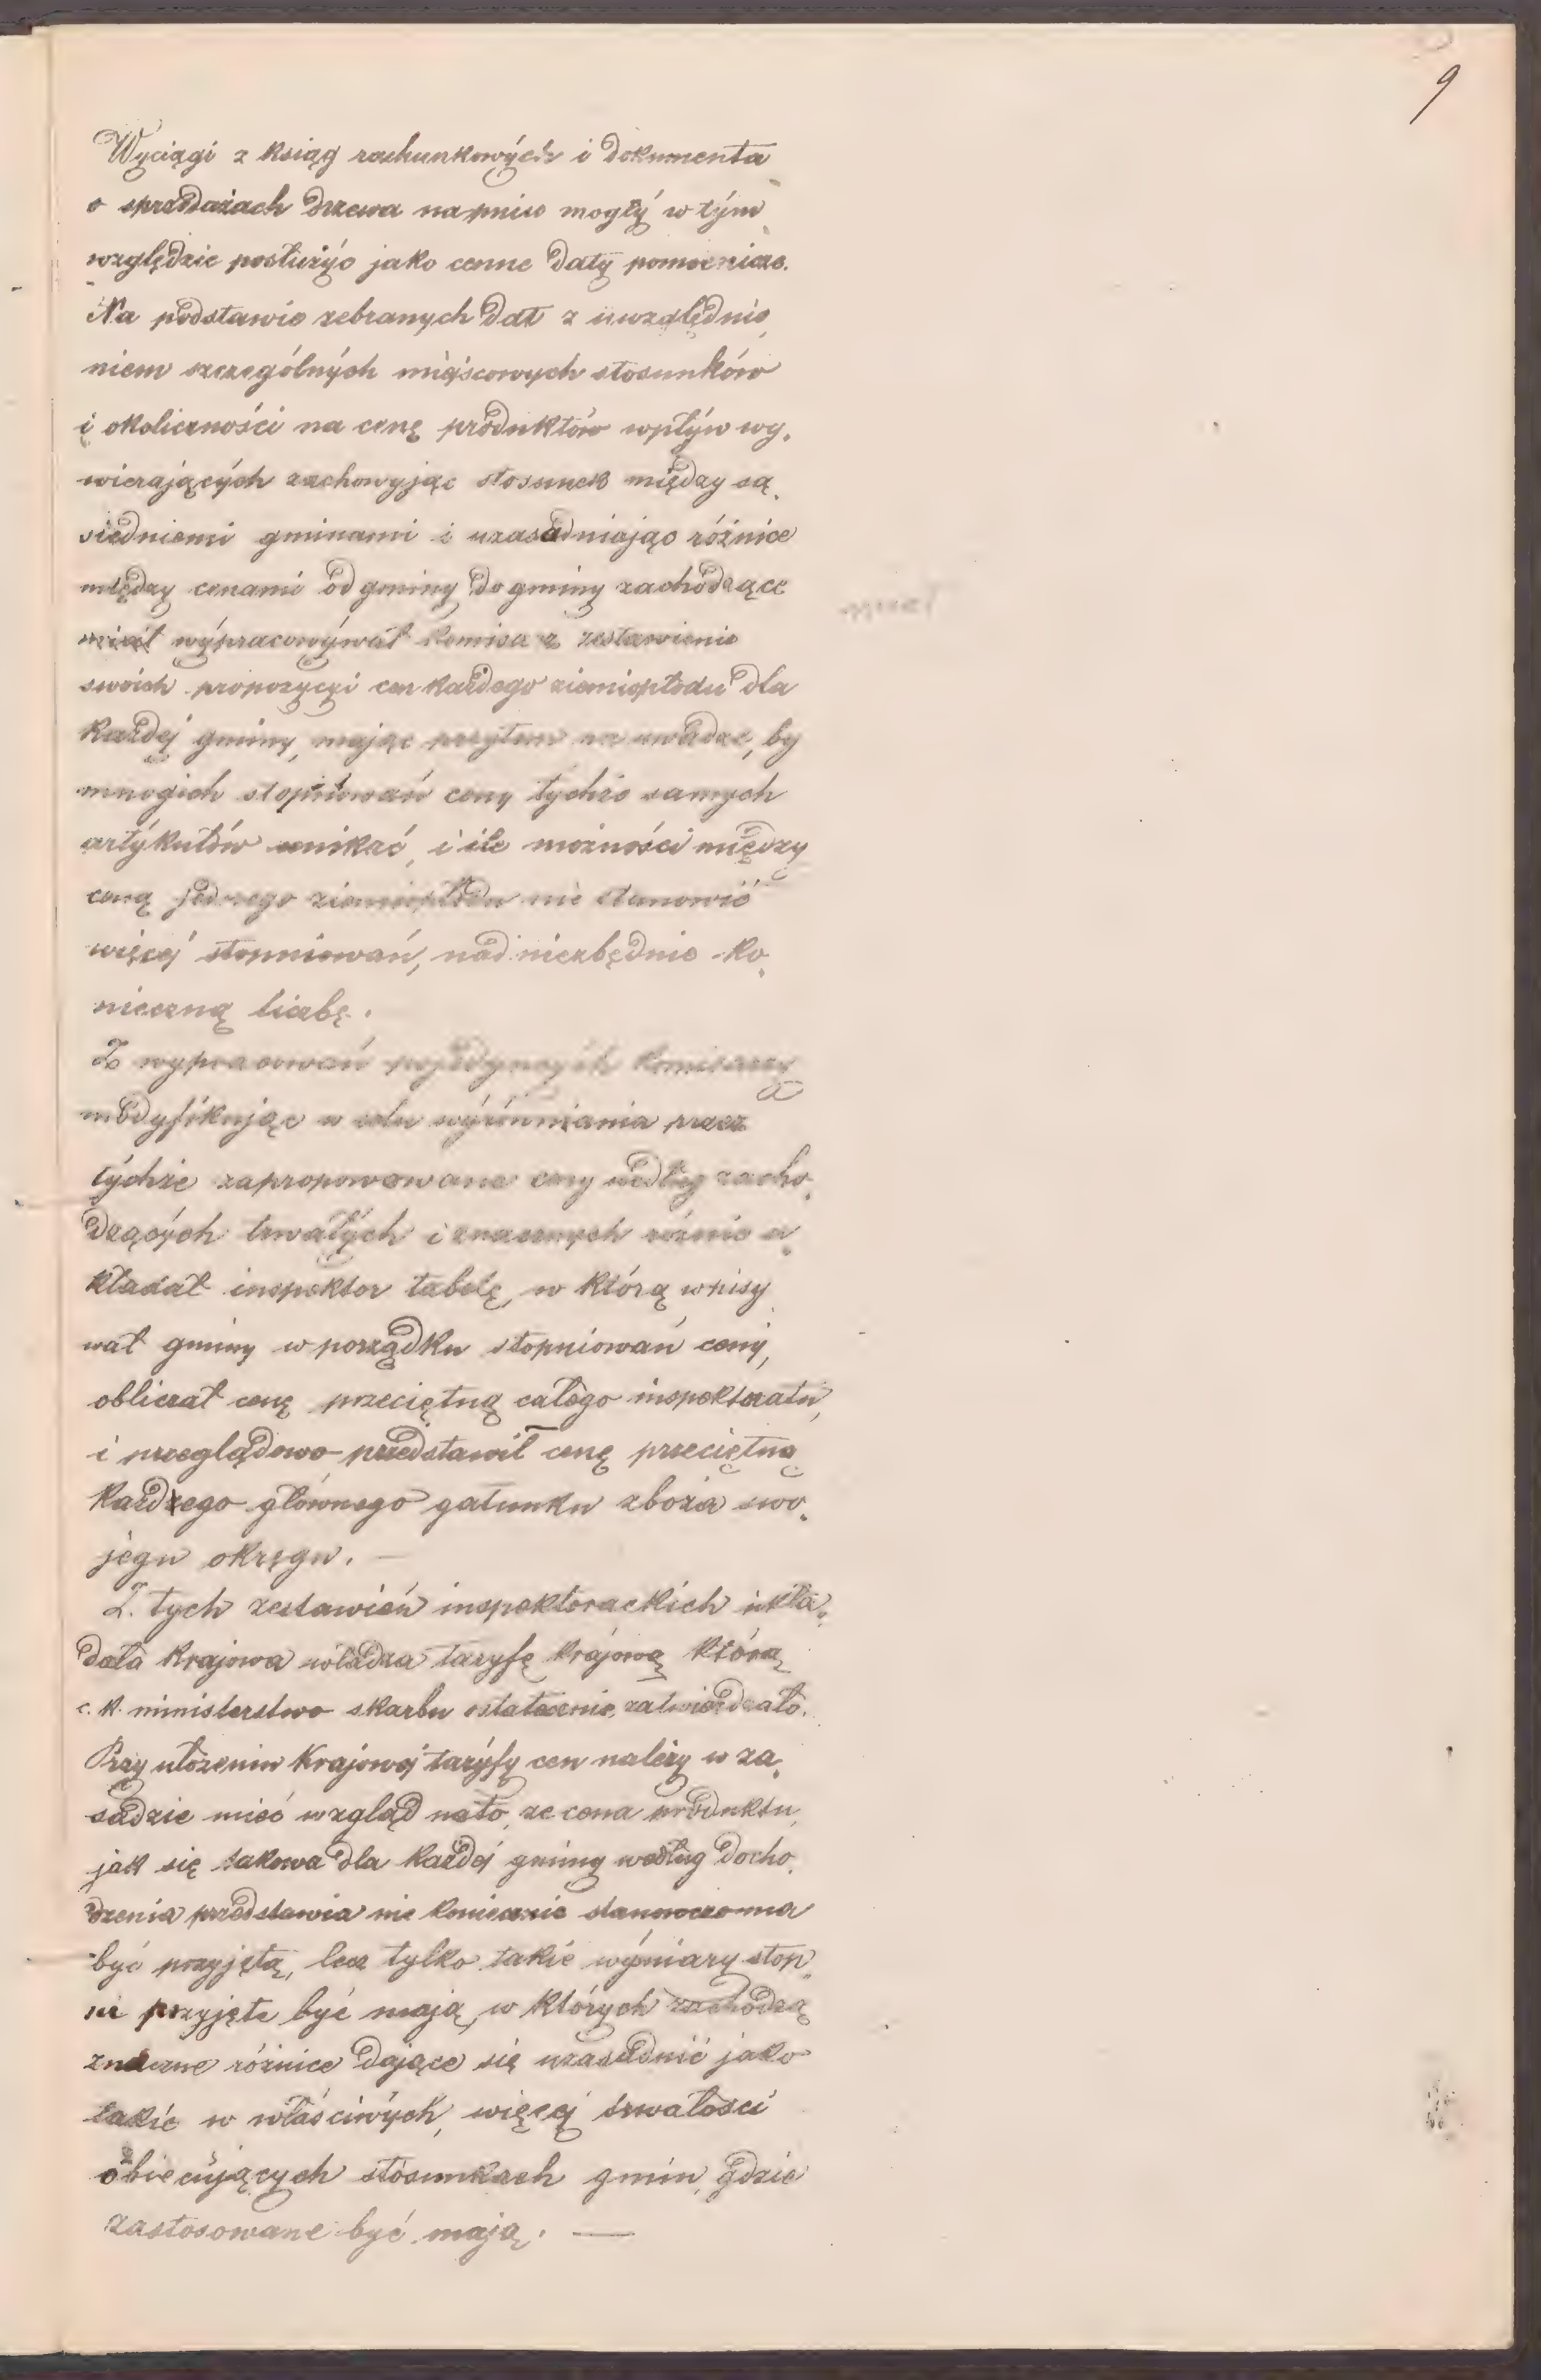 9
Wyciągi z ksiąg rachunkowych i dokumenta
o sprzedażach drzewa na pniu mogły w tym
względzie posłużyć jako cenne daty pomocnicze.
Na podstawie zebranych dat z uwzględnie,
niem szczególnych miejscowych stosunków
i okoliczności na cenę produktów wpływ wy,
wierających zachowyjąc stosunek między są,
siedniemi gminami i uzasadniając różnice
między cenami od gminy do gminy zachodzące
miał wypracowywał komisarz zestawienie
swoich propozycyi cen każdego ziemiopłodu dla
każdej gminy, mając przytem na uwadze, by
mnogich stopniowań ceny tychże samych
artykułów unikać, i ile możności między
ceną jednego ziemiopłodu nie stanowić
więcej stopniowań, nad niezbędnie ko,
nieczną liczbę.
Z wypracowań pojedynczych komisarzy
modyfikując w celu wyrównania przez
tychże zapropowowane ceny według zacho,
dzących trwałych i znacznych różnic u,
kładał inspektor tabelę, w którą wpisy,
wał gminy w porządku stopniowań ceny,
obliczał cenę przeciętną całego inspektoratu,
i przeglądowo przedstawił cenę przeciętną
każdego głównego gatunku zboża swo,
jego okręgu. —
Z. tych zestawień inspektorackich ukła,
dała krajowa władza taryfę krajową którą
c. k. ministerstwo skarbu ostatecznie zatwierdzało.
Przy ułożeniu krajowej taryfy cen należy w za,
sadzie mieć wzgląd na to, że cena produktu,
jak się takowa dla każdej gminy według docho,
dzenia przedstawia nie koniecznie stanowczo ma
być przyjętą, lecz tylko takie wymiary stop,
ni przyjęte być mają, w których zachodzą
znaczne różnice dające się uzasadnić jako
takie w właściwych, więcej trwałości
obiecujących stosunkach gmin, gdzie
zastosowane być mają. —